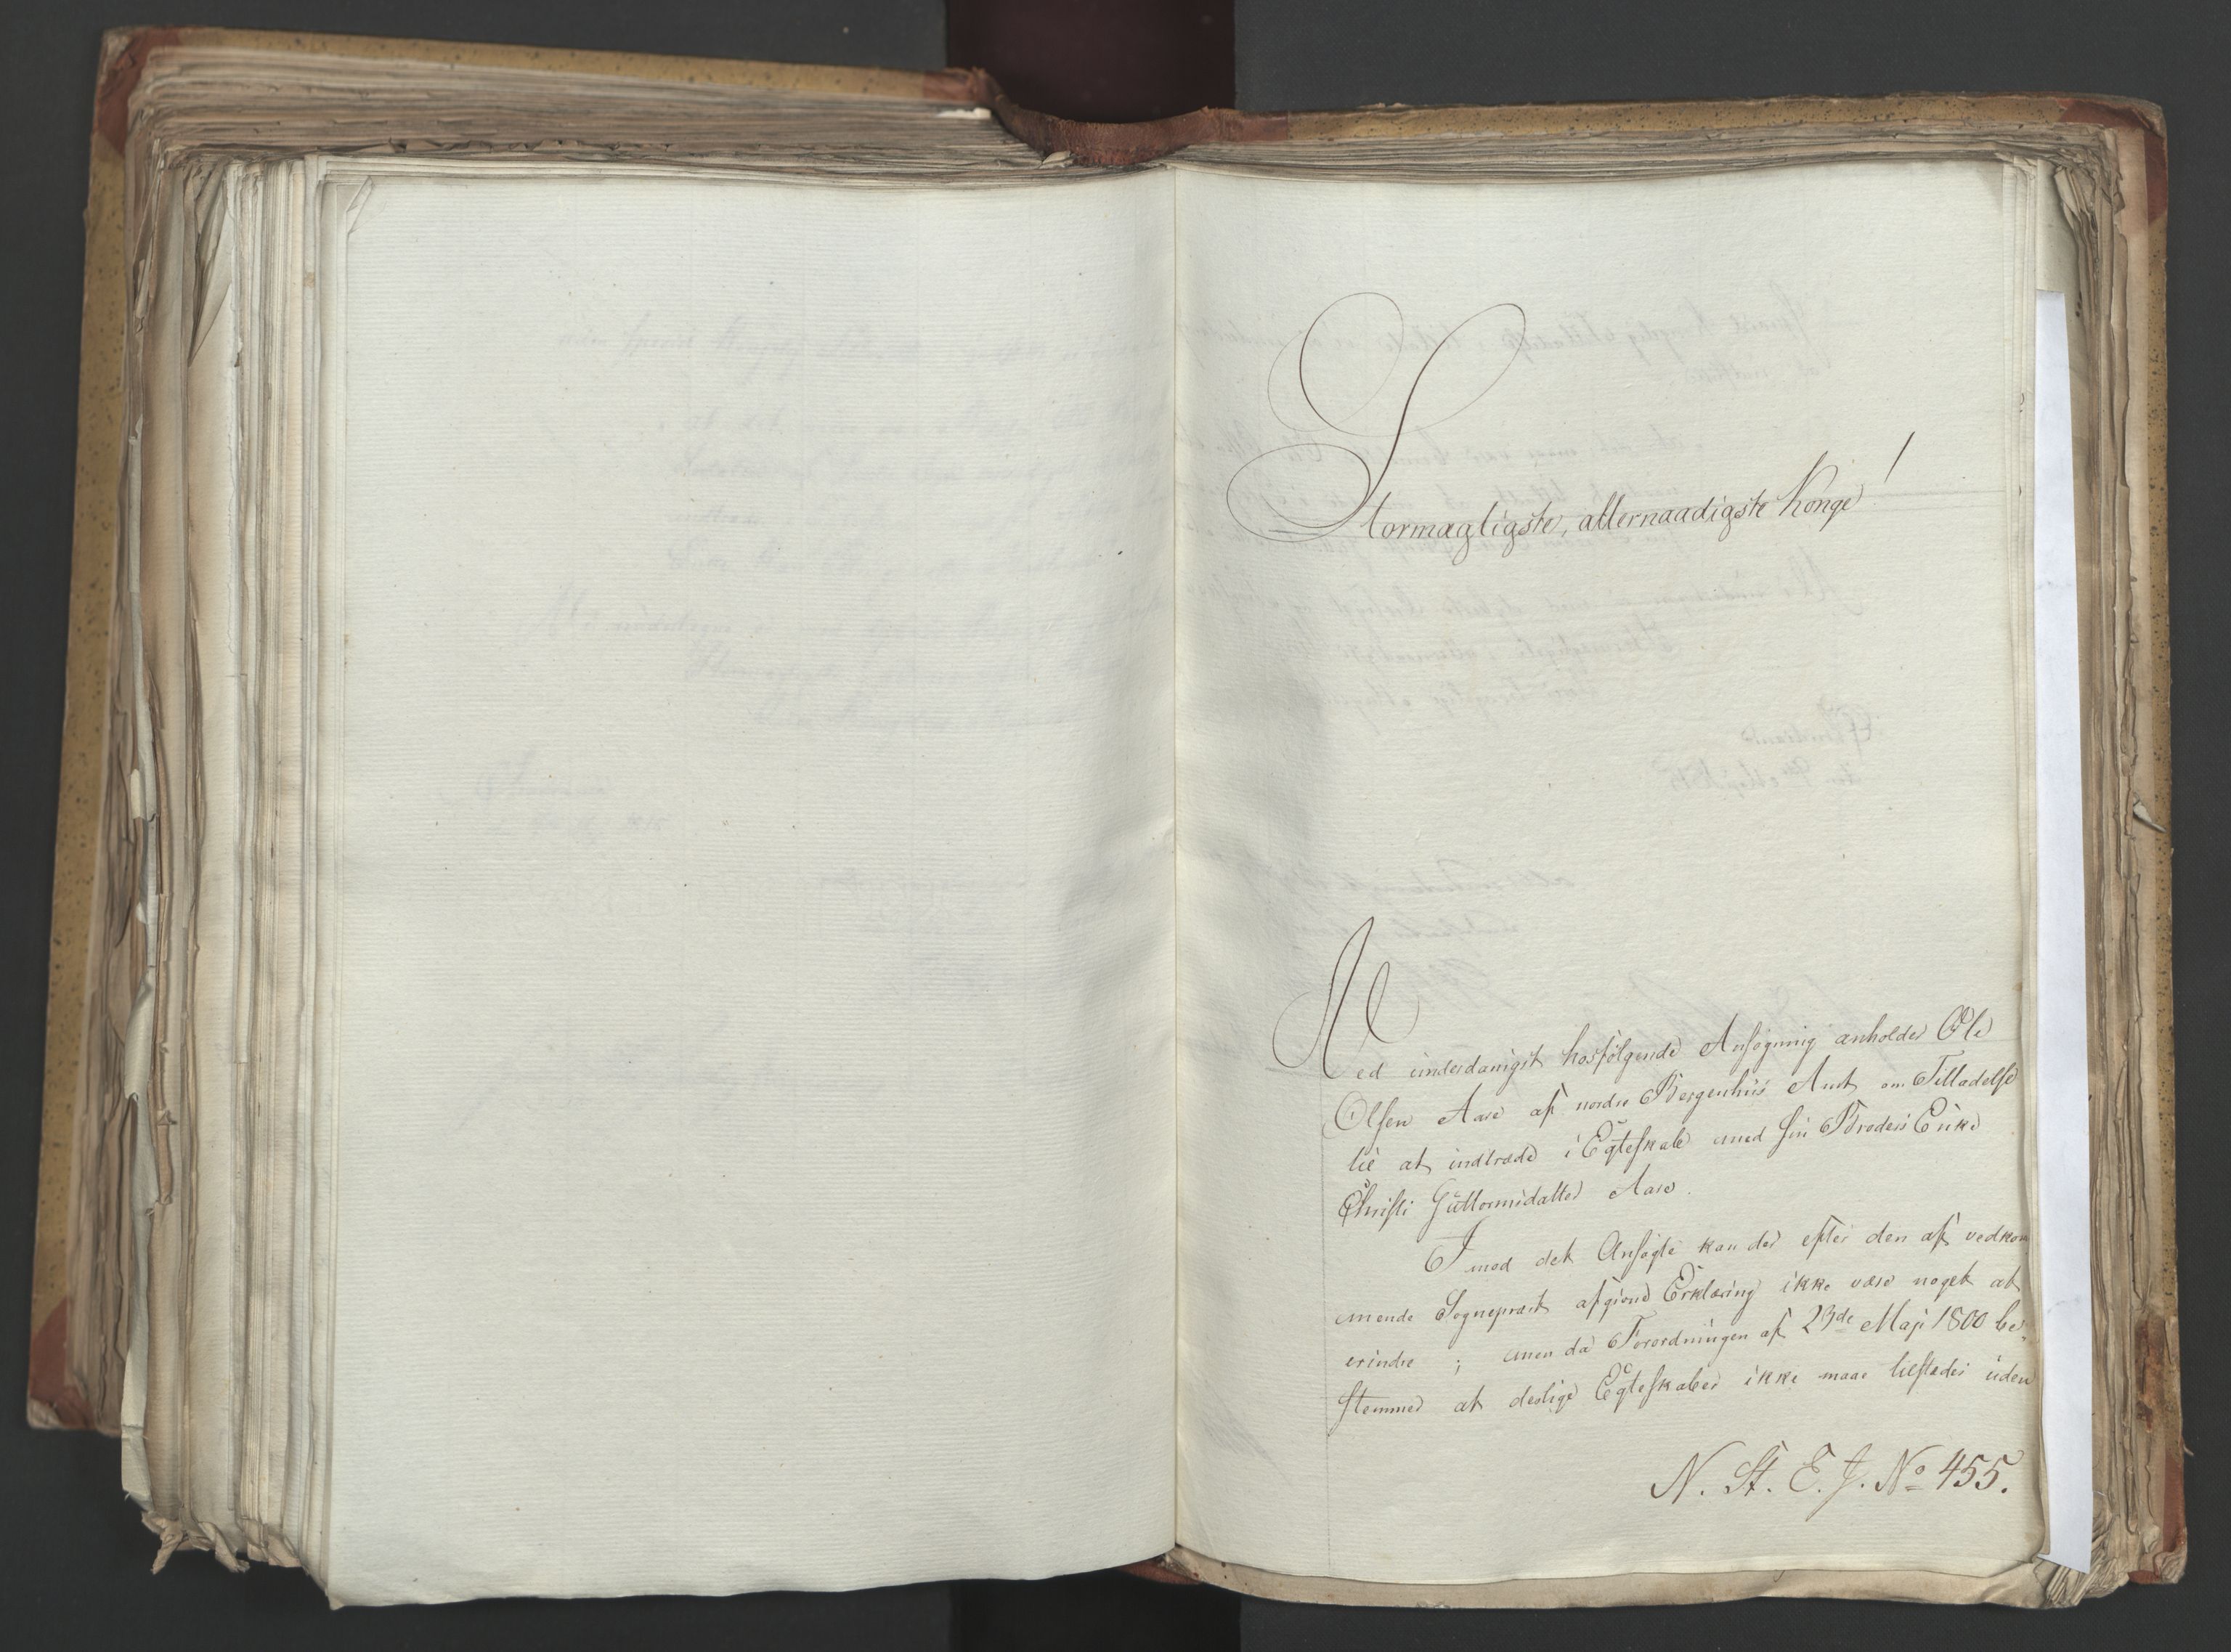 Stormægtigste, allernaadigste Konge!
Med underdanigst hosfølgende Ansøgning anholder Ole
Olsen Aase af nordre Bergenhuus Amt om Tilladelse
til at indtræde i Egteskab med sin Broders Enke
Christi Guttormsdatter Aase.
Imod det Ansøgte kan der efter den af vedkom
mende Sognepræst afgivne Erklæring ikke være noget at
erindre; men da Forordningen af 23de Maji 1800 be-
stemmer at deslige Egteskaber ikke maae tilstedes uden
N. St. E. J. No 455.